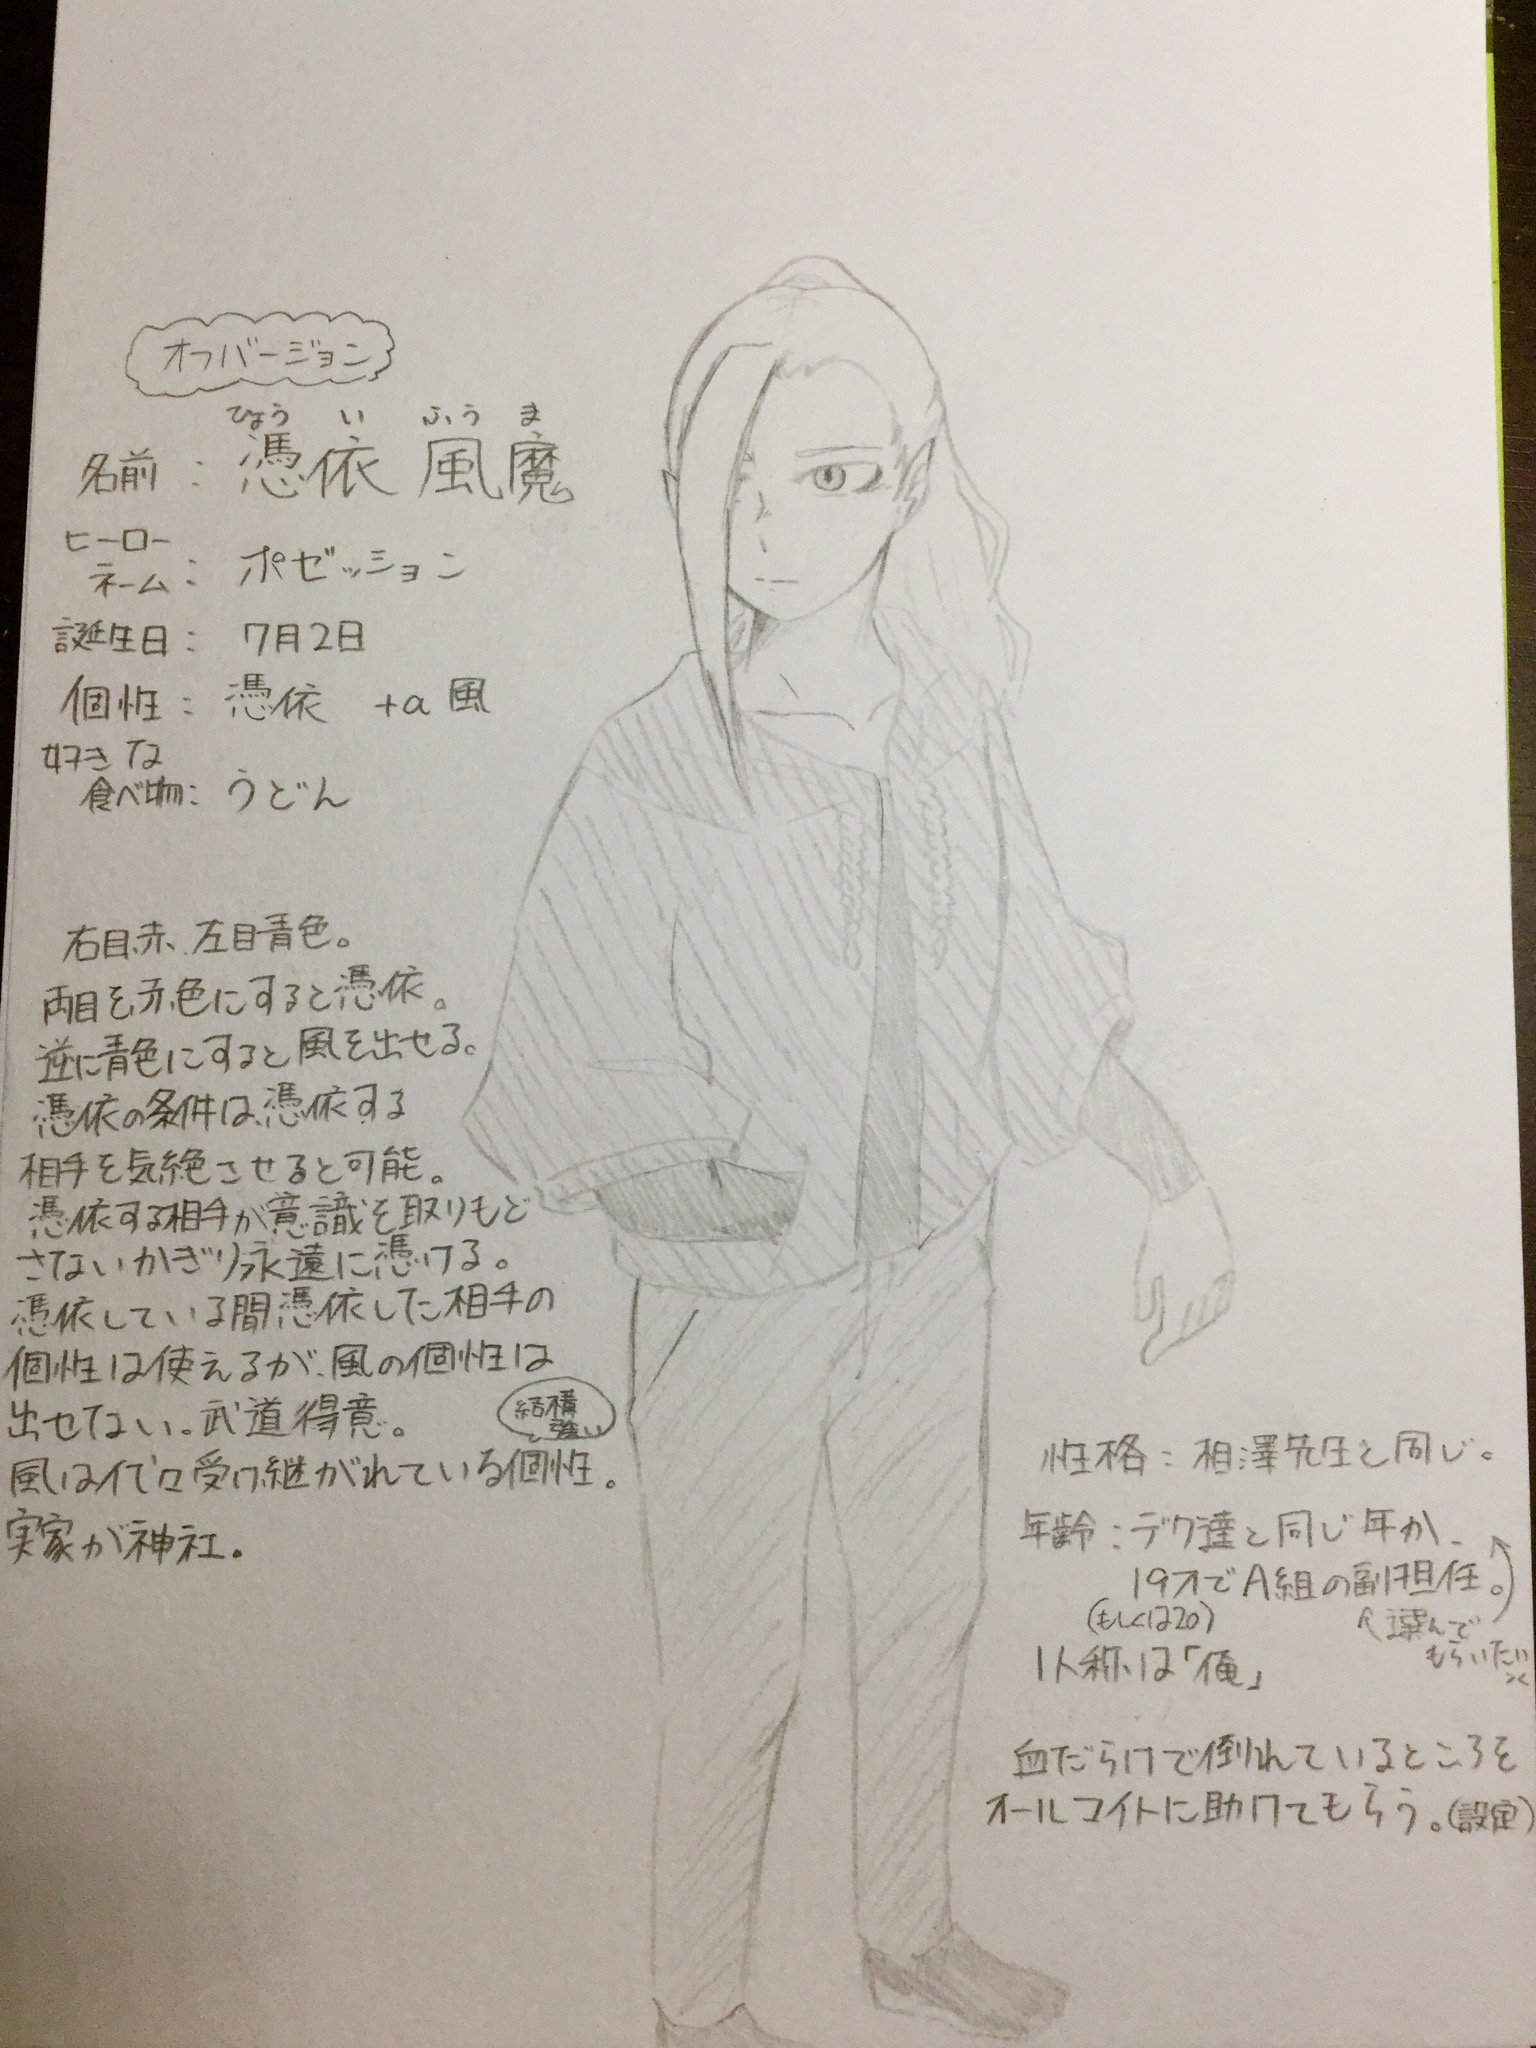 オフバージョン
ひょう い ふう ま
名前：憑依 風魔
ヒーロー
ネーム：ポゼッション
誕生日：7月2日
個性：憑依 +α 風
好きな
食べ物：うどん
右目赤、左目青色。
両目を赤色にすると憑依。
逆に青色にすると風を出せる。
憑依の条件は、憑依する
相手を気絶させると可能。
憑依する相手が意識を取りもど
さないかぎり永遠に憑ける。
憑依している間憑依した相手の
個性は使えるが、風の個性は
出せない。武道得意。
結構
強い
風は代々受け継がれている個性。
実家が神社。
性格：相澤先生と同じ。
年齢：デク達と同じ年か、
19才でA組の副担任。
(もしくは20)
選んで
もらいたい
1人称は「俺」
血だらけで倒れているところを
オールマイトに助けてもらう。(設定)